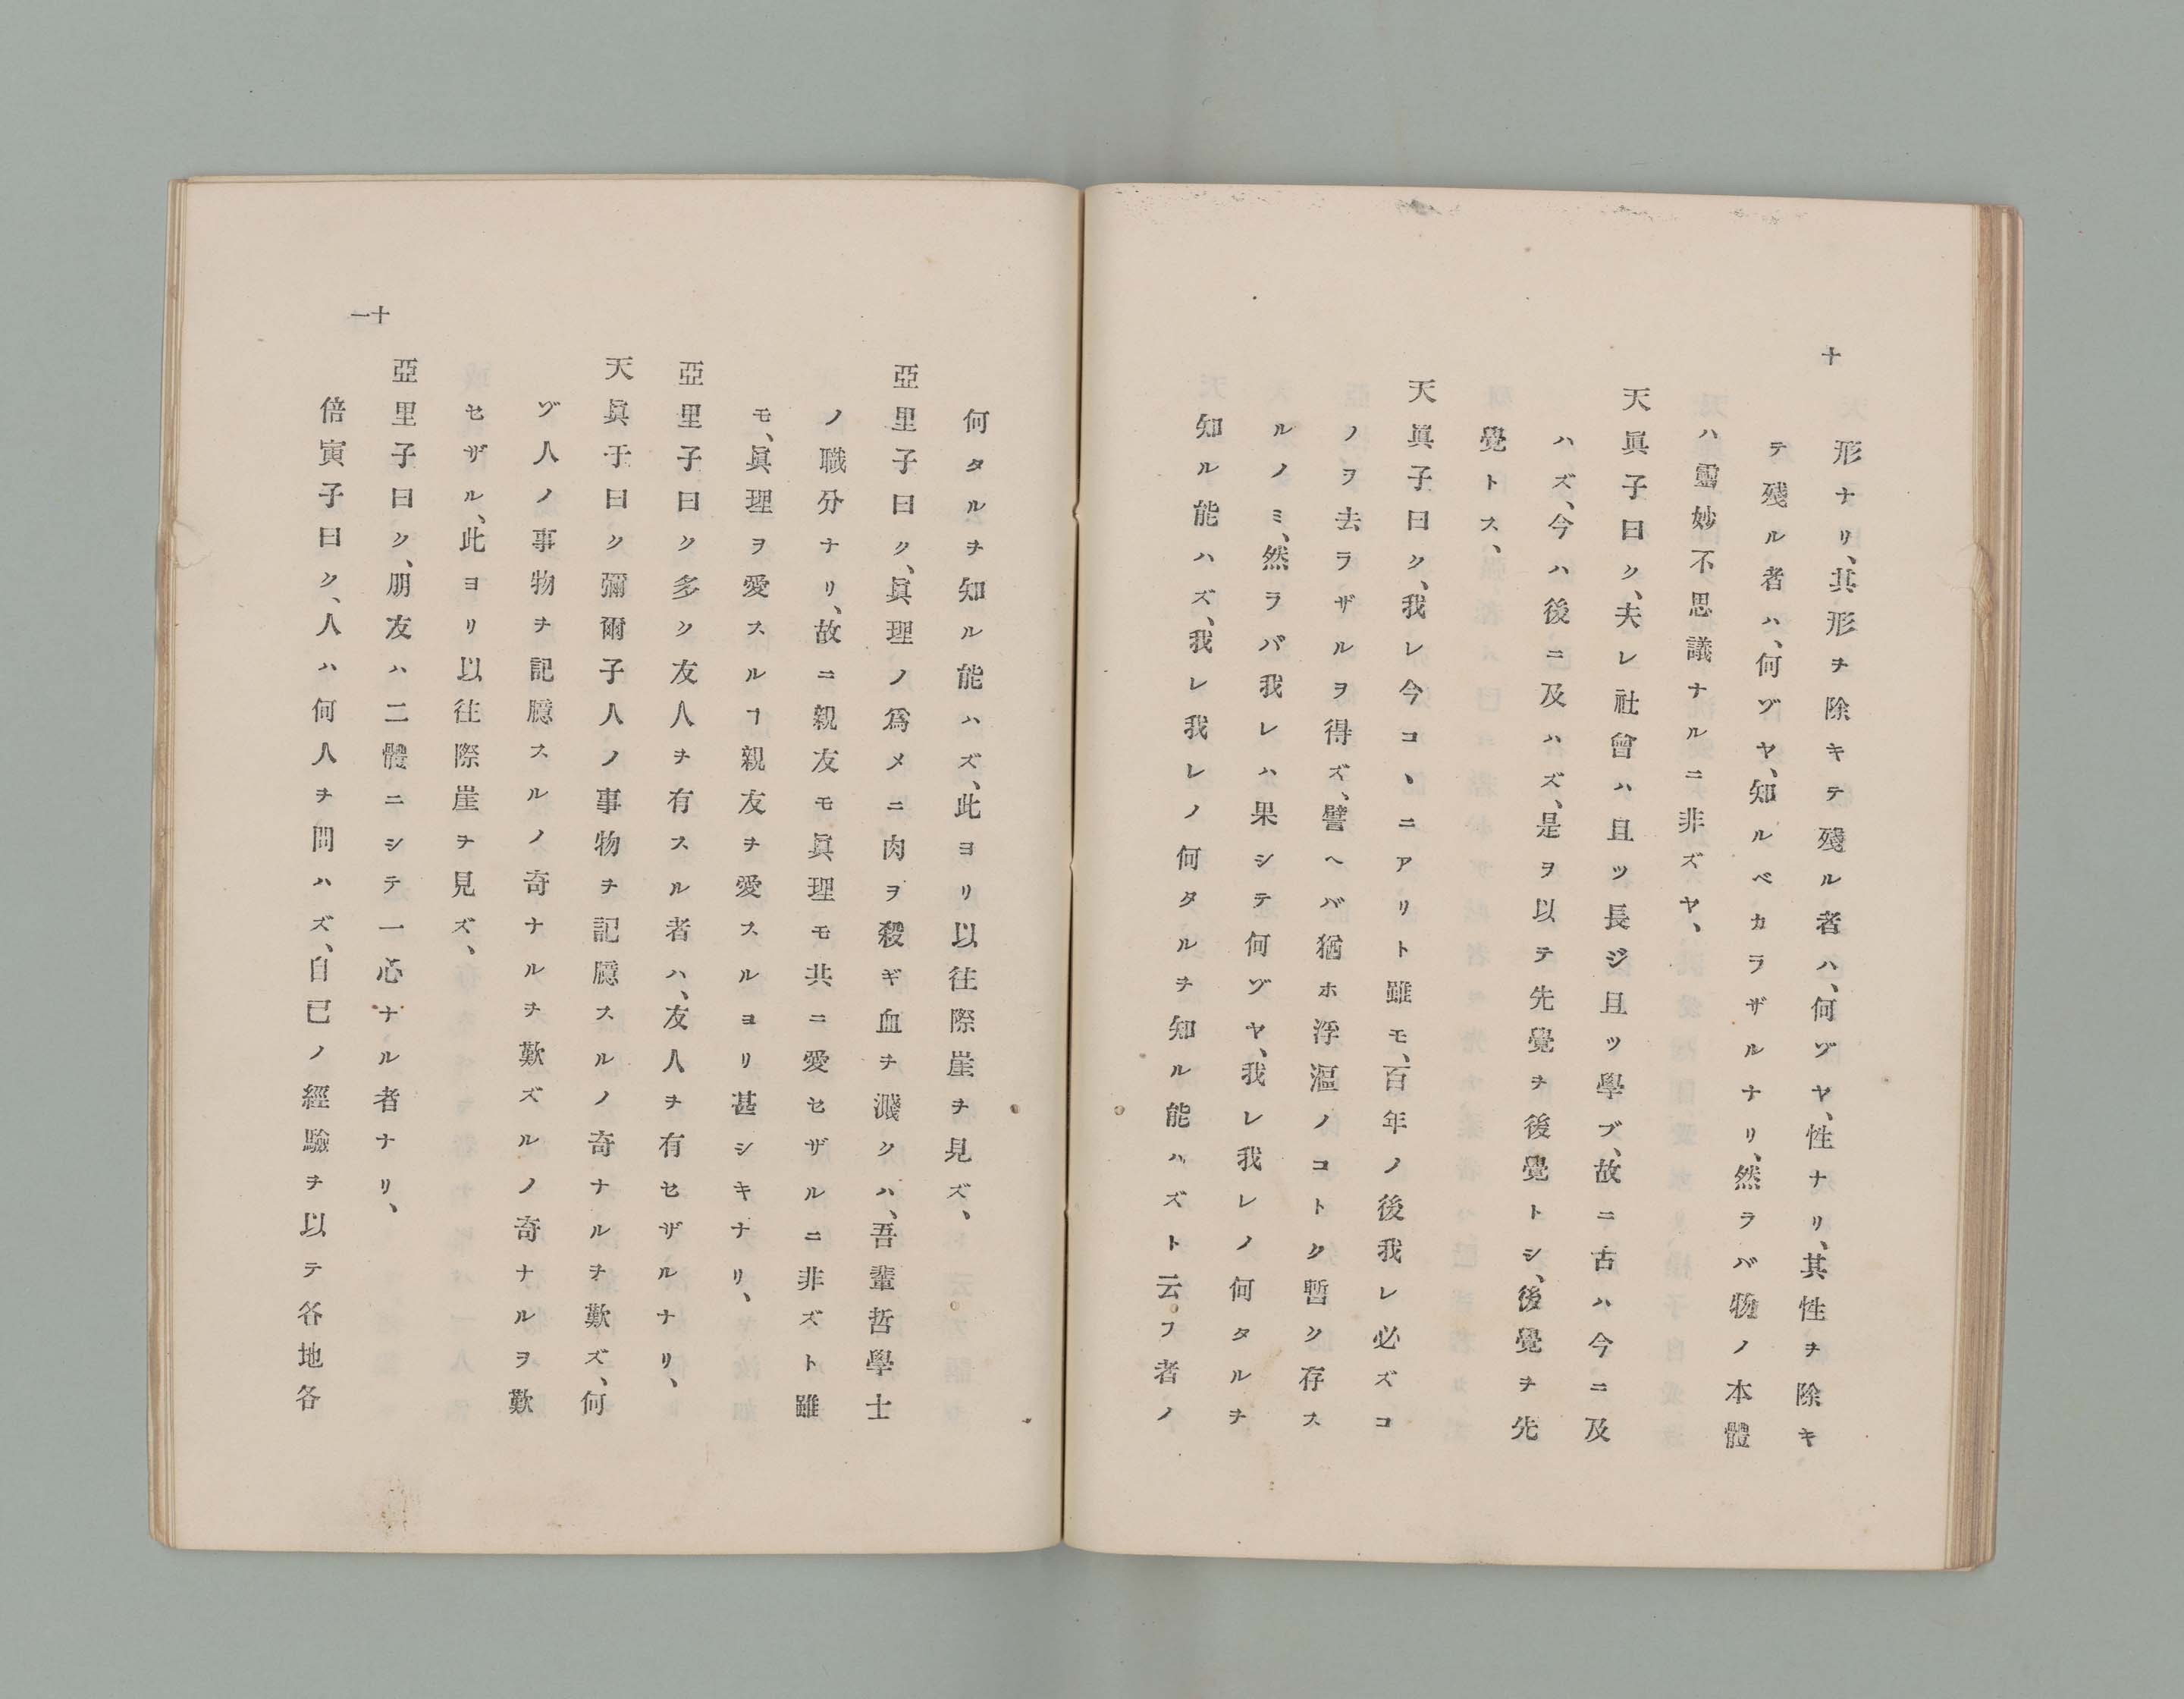 十
形ナリ、其形ヲ除キテ殘ル者ハ、何ゾヤ、性ナリ、其性ヲ除キ
テ殘ル者ハ、何ゾヤ、知ルベカラザルナリ、然ラバ物ノ本體
ハ靈妙不思議ナルニ非ズヤ、
天眞子曰ク、夫レ社會ハ且ツ長ジ且ツ學ブ、故ニ古ハ今ニ及
ハズ、今ハ後ニ及ハズ、是ヲ以テ先覺ヲ後覺トシ、後覺ヲ先
覺トス、
天眞子曰ク、我レ今コヽニアリト雖モ、百年ノ後我レ必ズコ
ノヲ去ラザルヲ得ズ、譬ヘバ猶ホ浮漚ノコトク暫ク存ス
ルノミ、然ラバ我レハ果シテ何ゾヤ、我レ我レノ何タルヲ
知ル能ハズ、我レ我レノ何タルヲ知ル能ハズト云フ者ノ
何タルヲ知ル能ハズ、此ヨリ以往際崖ヲ見ズ、
亞里子曰ク、眞理ノ爲メニ肉ヲ殺ギ血ヲ濺クハ、吾輩哲學士
ノ職分ナリ、故ニ親友モ眞理モ共ニ愛セザルニ非ズト雖
モ、眞理ヲ愛スルヿ親友ヲ愛スルヨリ甚シキナリ、
亞里子曰ク多ク友人ヲ有スル者ハ、友人ヲ有セザルナリ、
天眞于曰ク彌爾子人ノ事物ヲ記臆スルノ奇ナルヲ歎ズ、何
ゾ人ノ事物ヲ記臆スルノ奇ナルヲ歎ズルノ奇ナルヲ歎
セザル、此ヨリ以往際崖ヲ見ズ、
亞里子曰ク、朋友ハ二體ニシテ一心ナル者ナリ、
倍寅子曰ク、人ハ何人ヲ問ハズ、自已ノ經驗ヲ以テ各地各
十一